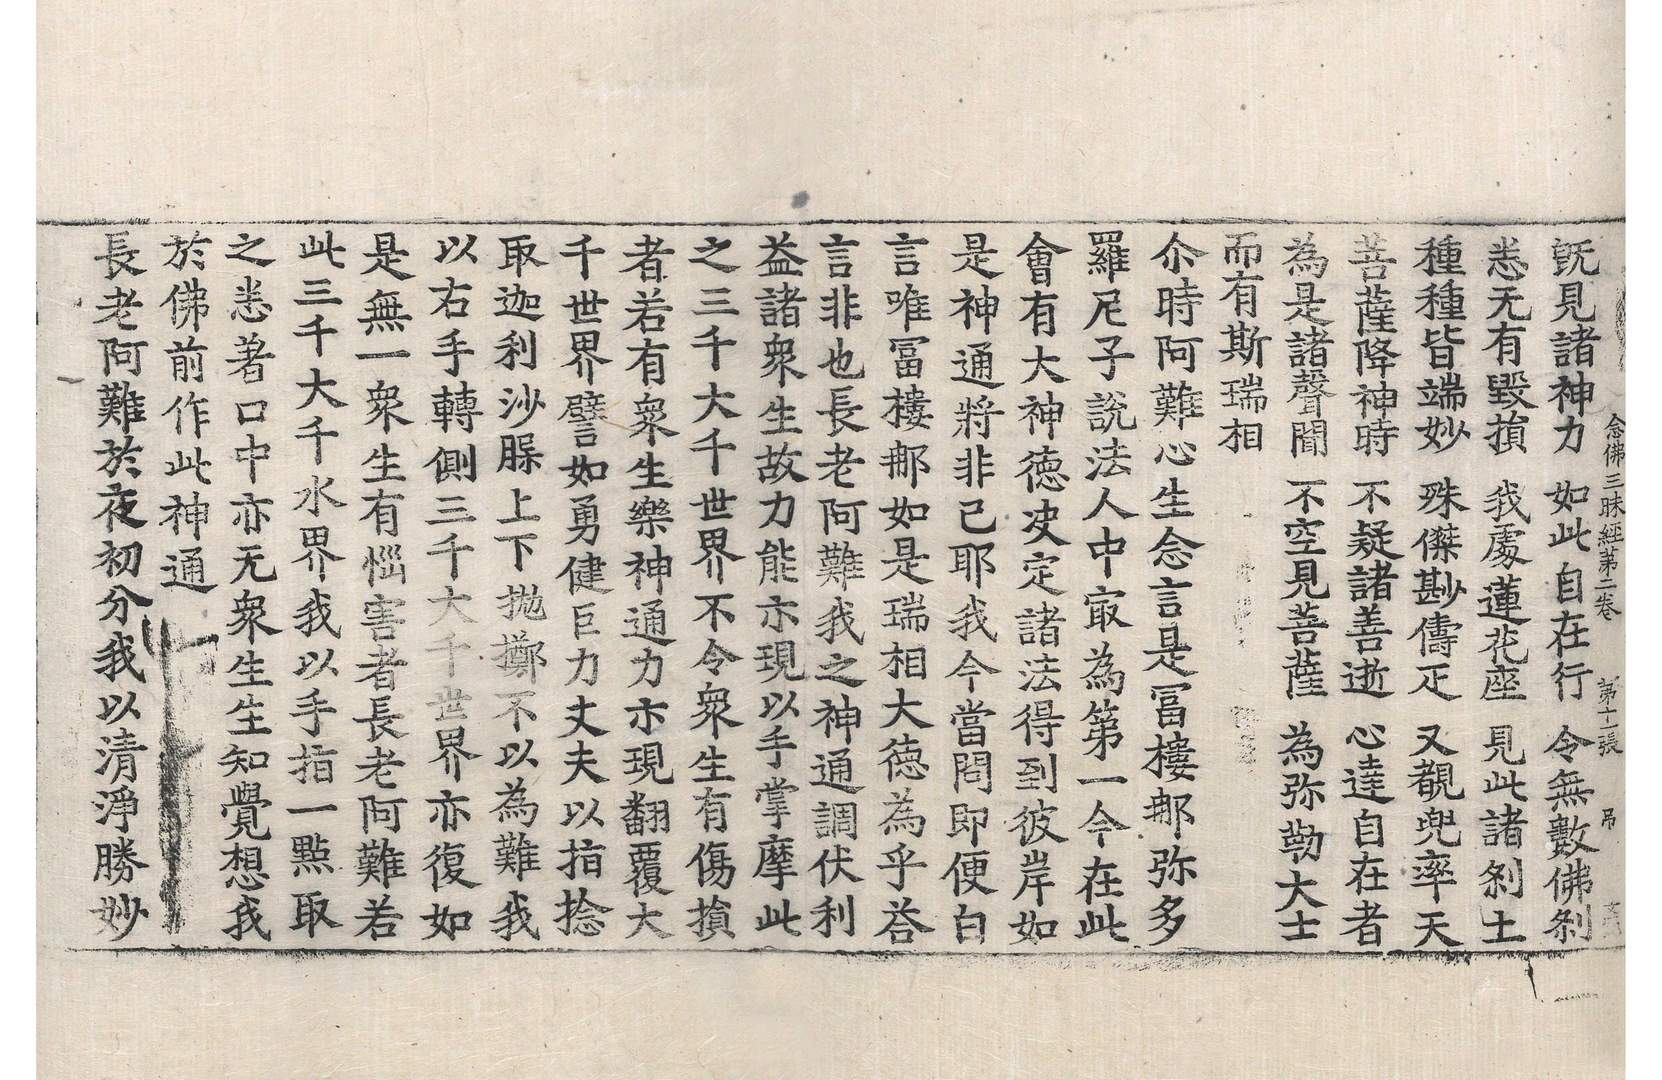 念佛三昧經第二卷 第十二張 吊
旣見諸神力 如此自在行 令無數佛刹
悉无有毀損 我處蓮花座 見此諸刹土
種種皆端妙 殊傑尠儔疋 又覩兜率天
菩薩降神時 不疑諸善逝 心達自在者
為是諸聲聞 不空見菩薩 為弥勒大士
而有斯瑞相
尒時阿難心生念言是冨樓那弥多
羅尼子說法人中㝡為第一今在此
會有大神德决定諸法得到彼岸如
是神通將非已耶我今當問即便白
言唯冨樓那如是瑞相大德為乎荅
言非也長老阿難我之神通調伏利
益諸衆生故力能亦現以手掌摩此
之三千大千世界不令衆生有傷損
者若有衆生樂神通力亦現翻覆大
千世界譬如勇健巨力丈夫以指捻
取迦利沙脲上下拋擲不以為難我
以右手轉側三千大千世界亦復如
是無一衆生有惱害者長老阿難若
此三千大千水界我以手指一點取
之悉著口中亦无衆生生知覺想我
於佛前作此神通
長老阿難於夜初分我以清淨勝妙